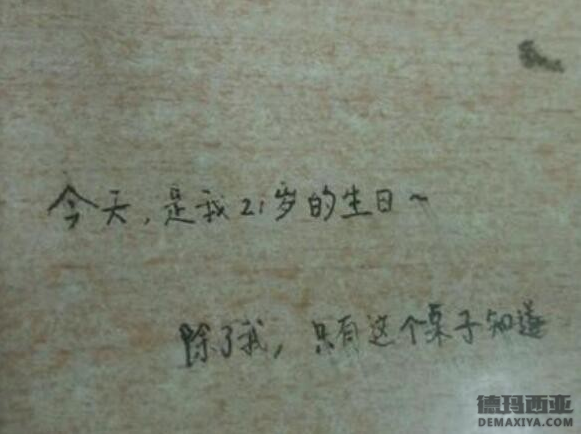 今天，是我21岁的生日~
除了我，只有这个栗子知道
德玛西亚
DEMAXIYA.COM